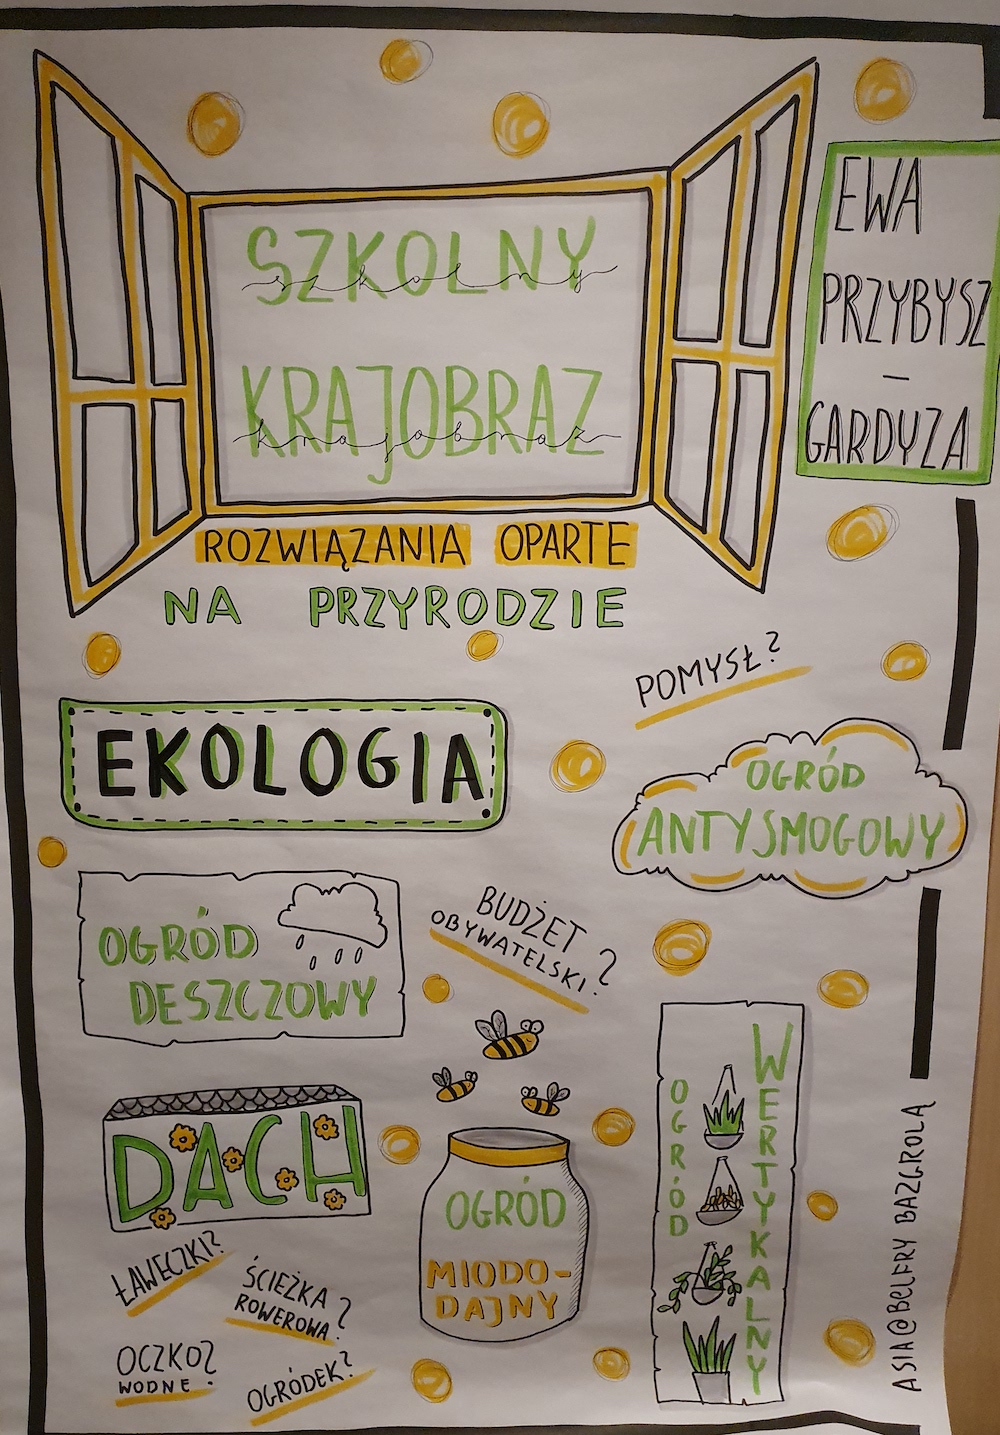 SZKOLNY
szkolny
KRAJOBRAZ
krajobraz
EWA
PRZYBYSZ
-
GARDYZA
ROZWIĄZANIA OPARTE
NA PRZYRODZIE
POMYSŁ?
EKOLOGIA
OGRÓD
ANTYSMOGOWY
OGRÓD
DESZCZOWY
BUDŻET
OBYWATELSKI?
DACH
OGRÓD
MIODO-
DAJNY
OGRÓD
WERTYKALNY
ŁAWECZKI?
ŚCIEŻKA
ROWEROWA?
OCZKO?
WODNE
OGRÓDEK?
ASIA@BELFRY BAZGROLĄ